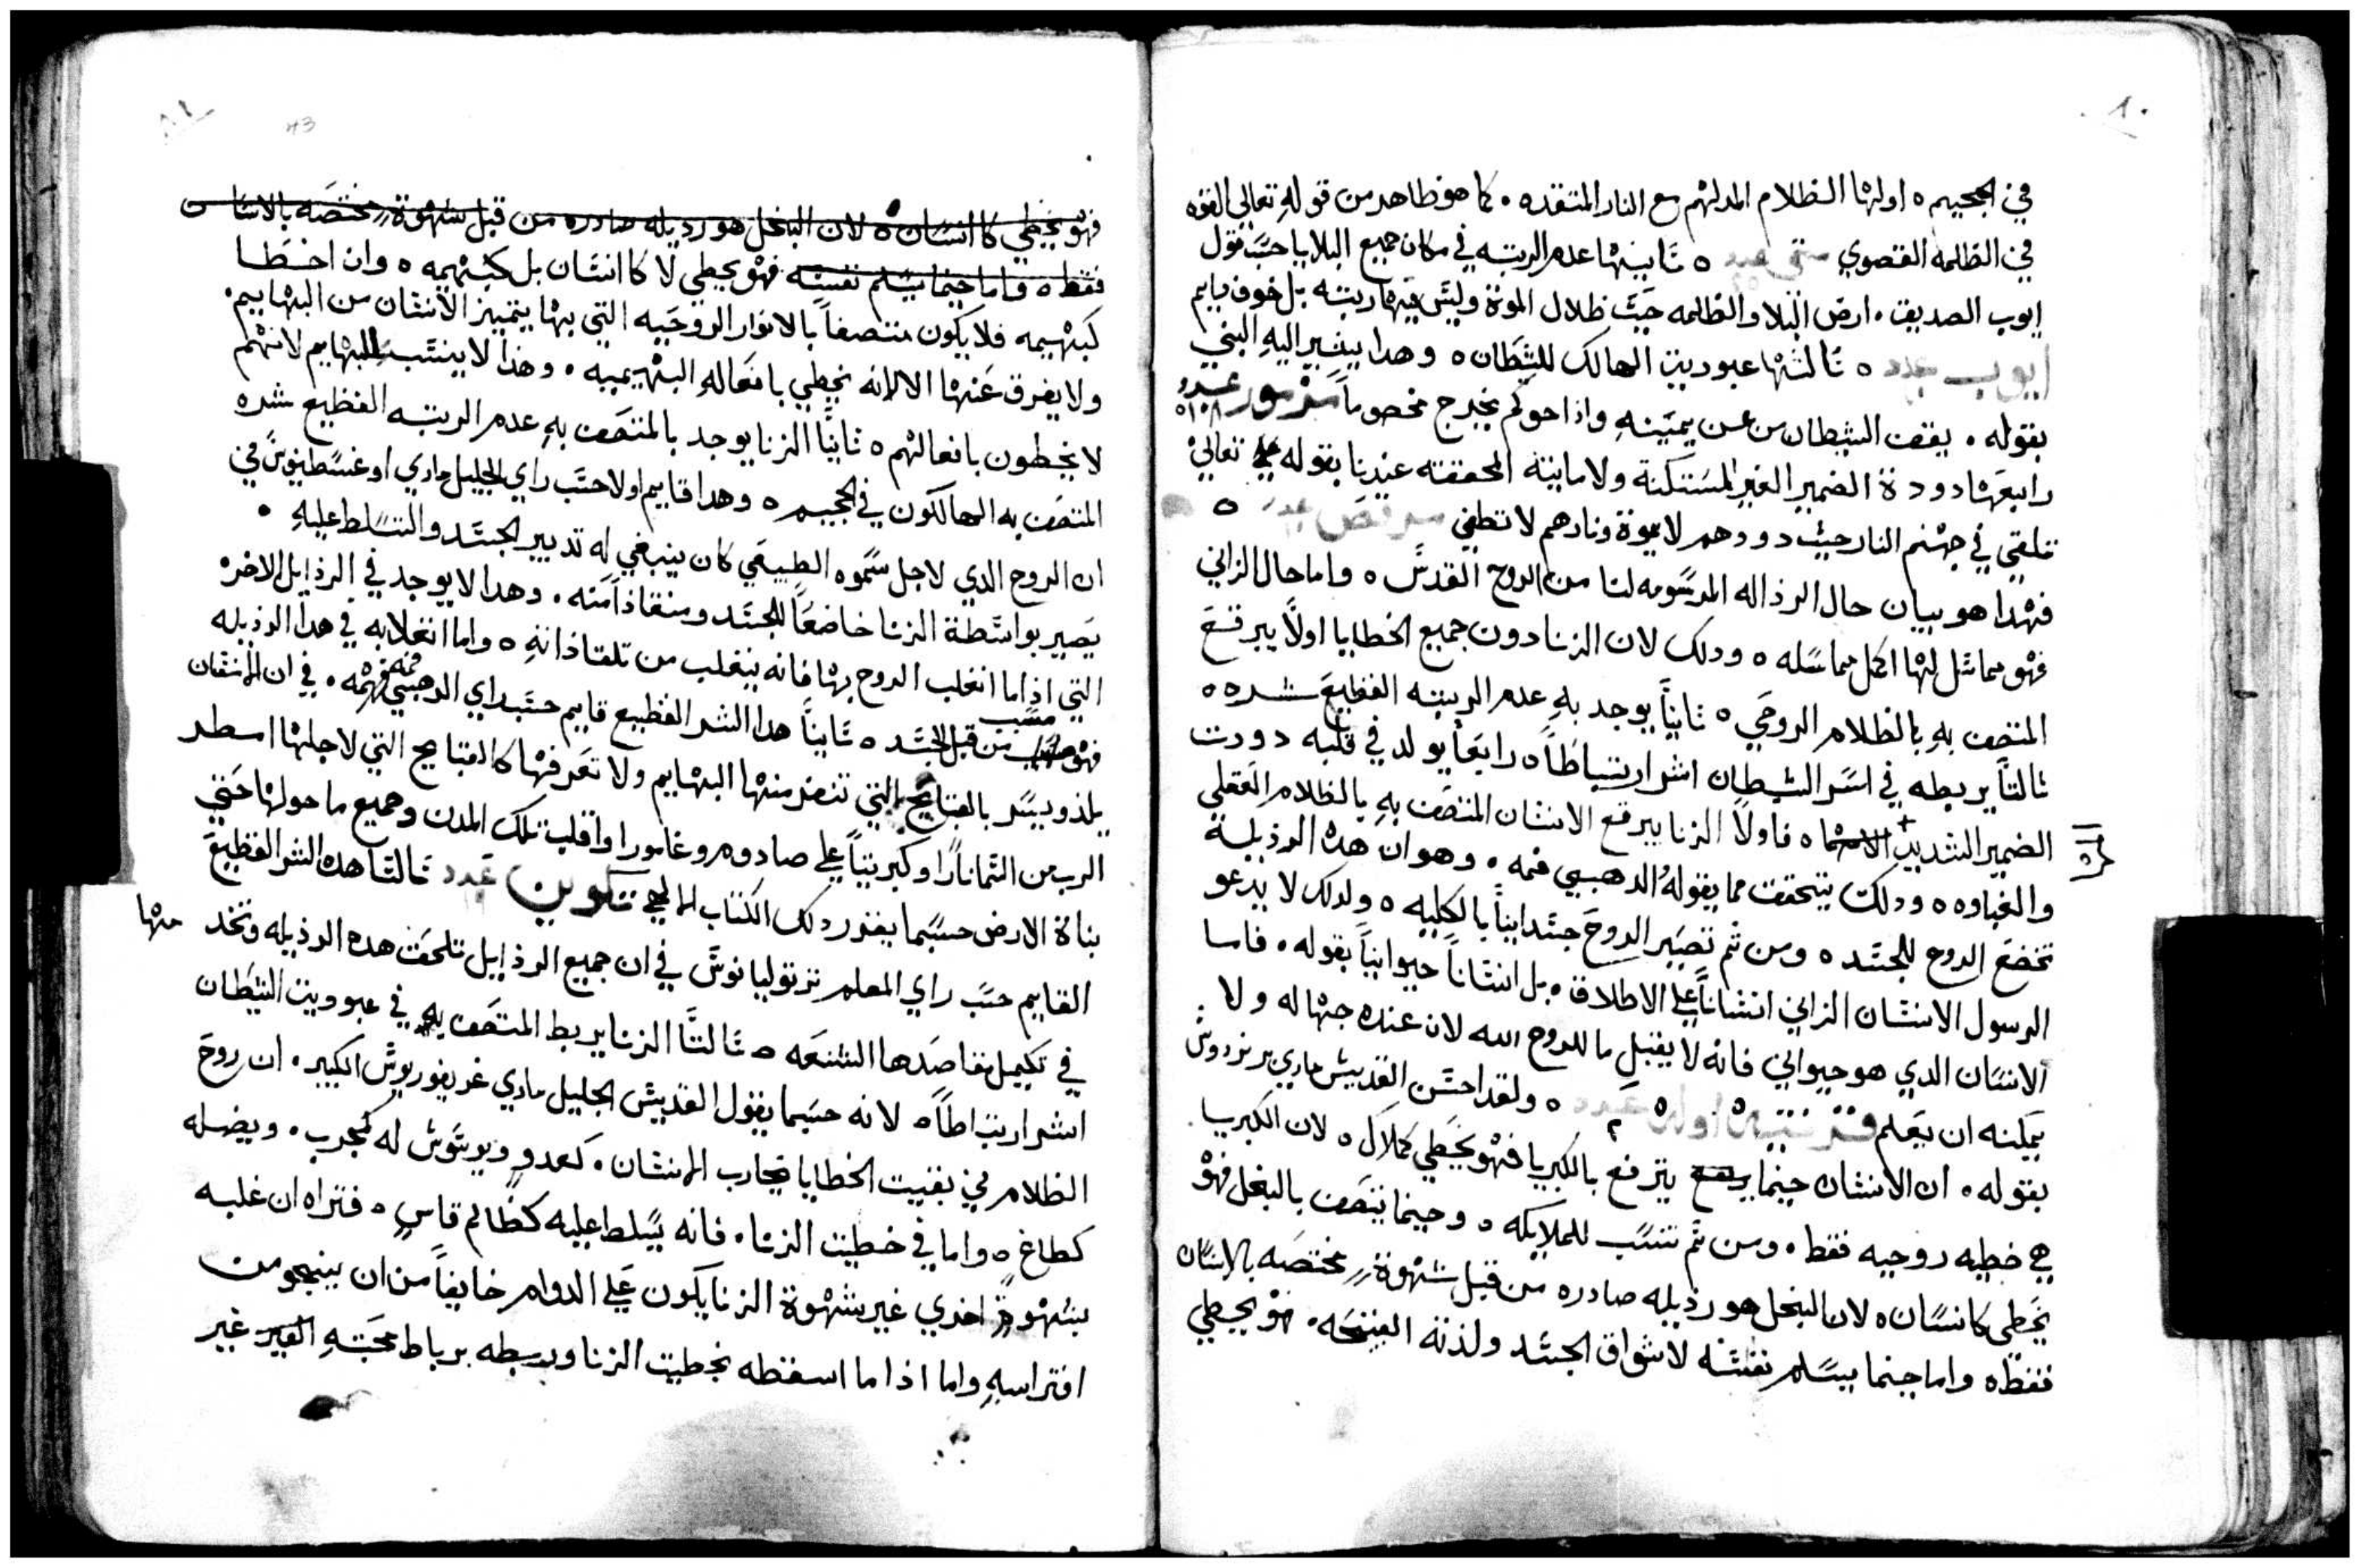 ٨٠
في الجحيم ٥ اولها الظلام المدلهم مع النار المتقده . كما هو ظاهر من قوله تعالي القوه
في الظلمه القصوي متي عدد ٥ ثانيها عدم الريبه في مكان جميع البلايا حسب قول
ايوب الصديق . ارض البلا والظلمه حيث ظلال الموة وليس فيها ريبه بل خوف دايم
ايوب عدد ٥ ثالثها عبوديت الهالك للشيطان ٥ وهدا يشير اليه النبي
بقوله . يقف الشيطان من عن يمينه واذا حوكم يخرج مخصوماً مزمور عدد ١٠٨
رابعها دودة الضمير الغير المستكنة ولا مايتة المحققته عندنا بقوله تعالي
تلقي في جهنم النار حيث دودهم لا يموة ونارهم لا تطفي مرقص عدد ٥
فهدا هو بيان حال الرذاله المرسومه لنا من الروح القدس ٥ واما حال الزاني
فهو مماثل لها اكمل مماسله ٥ ودلك لان الزنا دون جميع الخطايا اولاً يبرقع
المتصف به بالظلام الروحي ٥ ثانياً يوجد به عدم الريبه الفظيع شره ٥
ثالثاً يربطه في اسر الشيطان اشر ارتباطاً ٥ رابعاً يولد في قلبه دودت
الضمير الشديد الاسما ٥ فاولاً الزنا يبرقع الانسان المتصف به بالظلام العقلي
والغباوه ٥ ودلك يتحقق مما يقوله الدهبي فمه . وهو ان هده الرذيلة
تخضع الروح للجسد ٥ ومن ثم تصير الروح جسدانياً بالكليه ٥ ولدلك لا يدعو
الرسول الانسان الزاني انساناً علي الاطلاق . بل انساناً حيوانياً بقوله . فاما
الانسان الدي هو حيواني فانه لا يقبل ما للروح الله لان عنده جهاله ولا
يمكنه ان يعلم قرنتيه اولي عدد ٥ ولقد احسن القديس ماري برنردوس
بقوله . ان الانسان حينما يرتفع يترفع بالكبريا فهو يخطي كملاك ٥ لان الكبريا
هي خطيه روحيه فقط . ومن ثم تنسب للملايكه ٥ وحينما يتصف بالبخل فهو
يخطي كانسان ٥ لان البخل هو رذيله صادره من قبل شهوة مختصه بالانسان
فقط ٥ واما حينما يسلم نفسه لاشواق الجسد ولذته القبيحه . فهو يخطي
٨١
43
فهو يخطي كانسان ٥ لان البخل هو رذيله صادره من قبل شهوة مختصه بالانسان
فقط ٥ واما حينما يسلم نفسه فهو يخطي لا كانسان بل كبهيمه ٥ وان اخطا
كبهيمه فلا يكون متصفاً بالانوار الروحيه التي بها يتميز الانسان من البهايم .
ولا يفرق عنها الا لانه يخطي بافعاله البهيميه . وهذا لا ينسب للبهايم لانهم
لا يخطون بافعالهم ٥ ثانياً الزنا يوجد بالمتصف به عدم الريبه الفظيع شره
المتصف به الهالكون في الجحيم ٥ وهدا قايم اولا حسب راي الجليل ماري اوغسطينوس في
ان الروح الدي لاجل سموه الطبيعي كان ينبغي له تدبير الجسد والتسلط عليه .
يصير بواسطة الزنا خاضعاً للجسد ومنقاذاً منه . وهدا لا يوجد في الرذايل الاخره
التي اذا ما انغلب الروح بها فانه ينغلب من تلقا ذاته ٥ واما انغلابه في هدا الرذيله
فهو مسبب من قبل الجسد ٥ ثانياً هدا الشر الفظيع قايم حسب راي الدهبي فمه . في ان الانسان
يلذ ويسر بالقبايح التي تنفر منها البهايم ولا تعرفها كالقبايح التي لاجلها امطر
الرب من السما ناراً وكبريتاً علي صادوم وغامورا واقلب تلك المدن وجميع ما حولها حتي
بناة الارض حسبما يفدر دلك الكتاب الالهي تكوين عدد ثالثا هده الشر الفظيع
القايم حسب راي المعلم ترتوليانوس في ان جميع الرذايل تلحق هده الرذيله وتخد منها
في تكميل مقاصدها الشنعه ٥ ثالثاً الزنا يربط المتصف به في عبوديت الشيطان
اشر ارتباطاً ٥ لانه حسبما يقول القديس الجليل ماري غريغوريوس الكبير . ان روح
الظلام في بقيت الخطايا يحارب الانسان . كعدوٍ ويوسوس له كمجرب . ويضله
كطاغٍ ٥ واما في خطيت الزنا . فانه يسلط عليه كظالم قاسٍ ٥ فتراه ان غلبه
بشهوة اخري غير شهوة الزنا يكون علي الدوام خايفاً من ان ينجو من
افتراسه واما اذا ما اسقطه بخطيت الزنا وربطه برباط محبته الغير غير